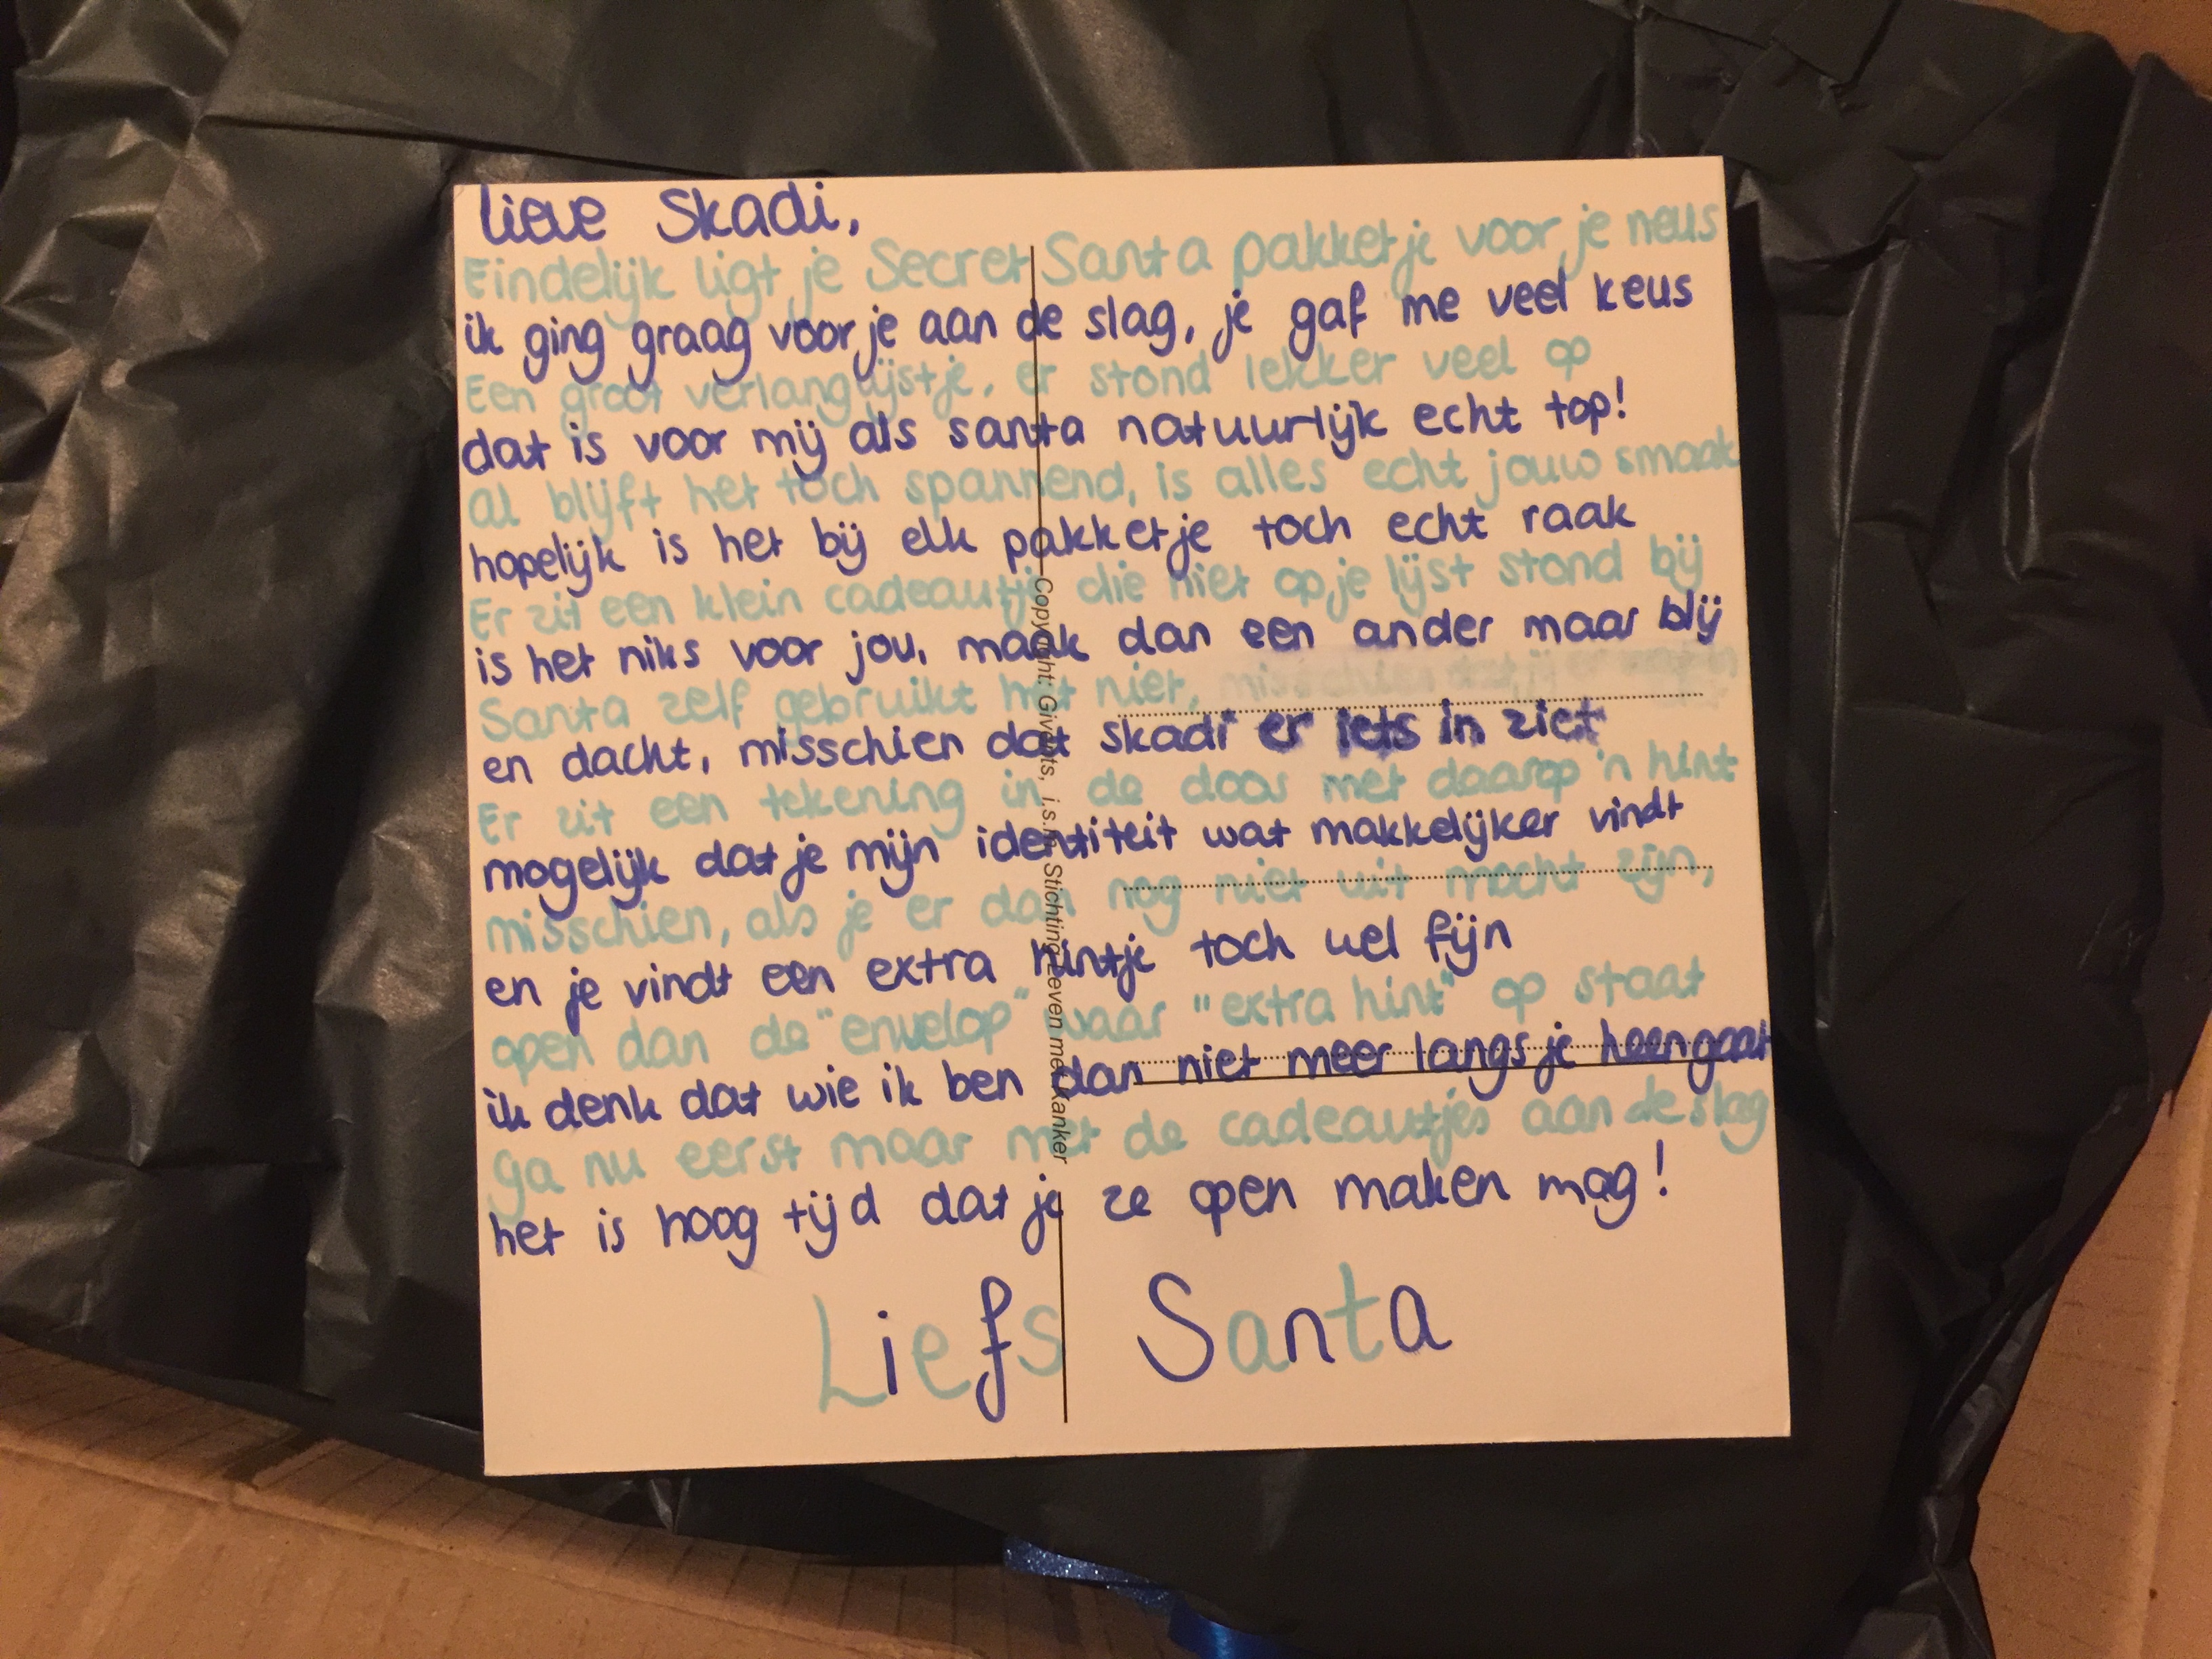 lieve Skadi,
Eindelijk ligt je Secret Santa pakketje voor je neus
ik ging graag voor je aan de slag, je gaf me veel keus
Een groot verlanglijstje, er stond lekker veel op
dat is voor mij als santa natuurlijk echt top!
al blijft het toch spannend, is alles echt jouw smaak
hopelijk is het bij elk pakketje toch echt raak
Er zit een klein cadeautje die niet op je lijst stond bij
is het niks voor jou, maak dan een ander maar blij
Santa zelf gebruikt het niet,
en dacht, misschien dat skadi er iets in ziet
Er zit een tekening in de doos met daarop 'n hint
mogelijk dat je mijn identiteit wat makkelijker vindt
misschien, als je er dan nog niet uit mocht zijn,
en je vindt een extra hintje toch wel fijn
open dan de "envelop" waar "extra hint" op staat
ik denk dat wie ik ben dan niet meer langs je heen gaat
ga nu eerst maar met de cadeautjes aan de slag
het is hoog tijd dat je ze open maken mag!
Liefs Santa
Copyright: Givents, i.s.m. Stichting Leven met Kanker